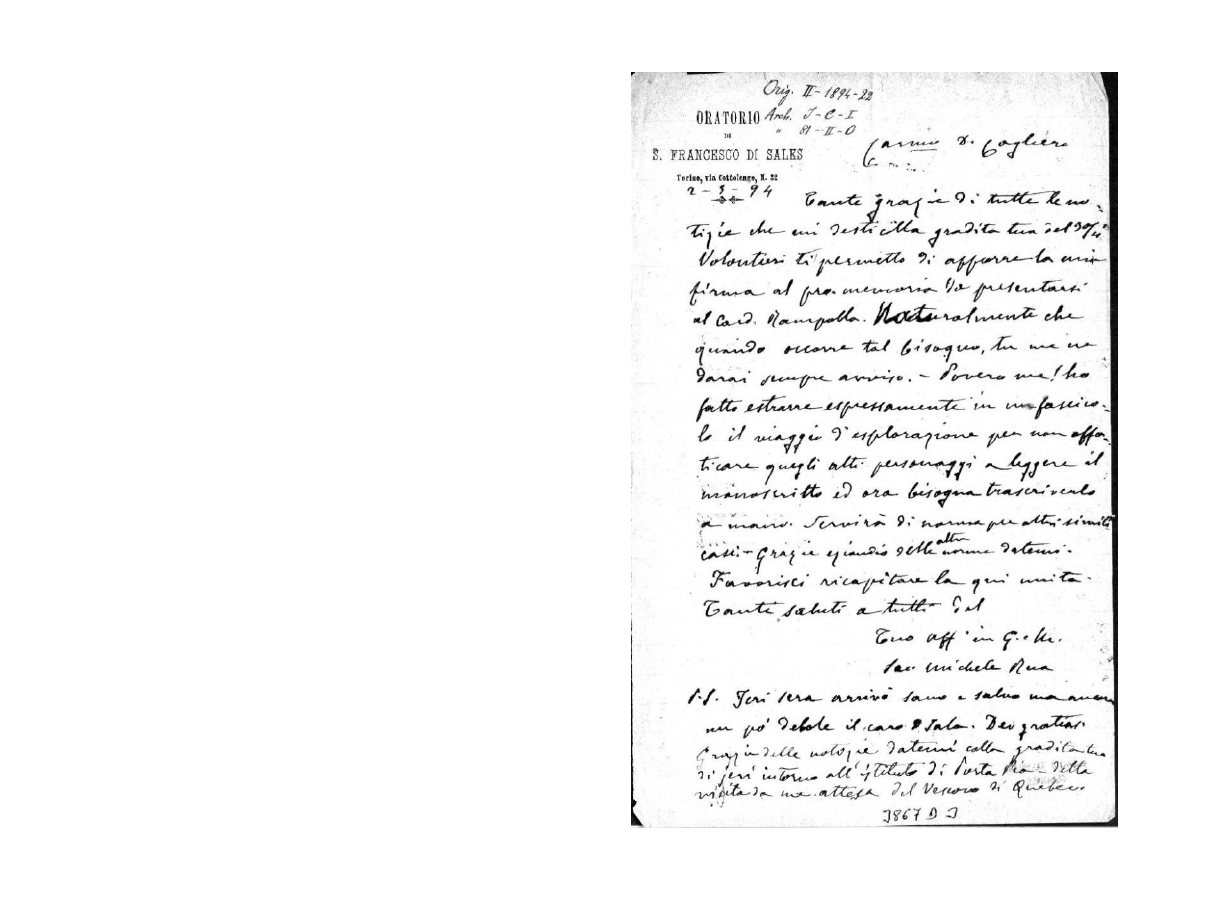 Orig. II-1894-22
ORATORIO Arch. I-C-I
DI " 81-II-O
Car.mo D. Cagliero
S. FRANCESCO DI SALES
Torino, via Cottolengo, N. 32
2-5-94
Tante grazie di tutte le no-
tizie che mi desti colla gradita tua del
Volontieri ti permetto di apporre la mia
firma al pro-memoria da presentarsi
al Card. Rampolla. Naturalmente che
quando occorre tal bisogno, tu me ne
darai sempre avviso. - Povero me! ho
fatto estrarre espressamente in un fascico-
lo il viaggio d'esplorazione per non affa-
ticare quegli alti personaggi a leggere il
manoscritto ed ora bisogna trascriverlo
a mano. Servirà di norma per altri simili
casi. - Grazie eziandio delle altre norme datemi.
Favorisci ricapitare la qui unita.
Tanti saluti a tutti dal
Tuo aff. in G. e M.
Sac. Michele Rua
P.S. Jeri sera arrivò sano e salvo ma ancora
un po' debole il caro D. Sala. Deo gratias.
Grazie delle notizie datemi colla gradita tua
di jeri intorno all'istituto di Porta Pia e della
visita da me attesa del Vescovo di Quebec.
3867 D 3